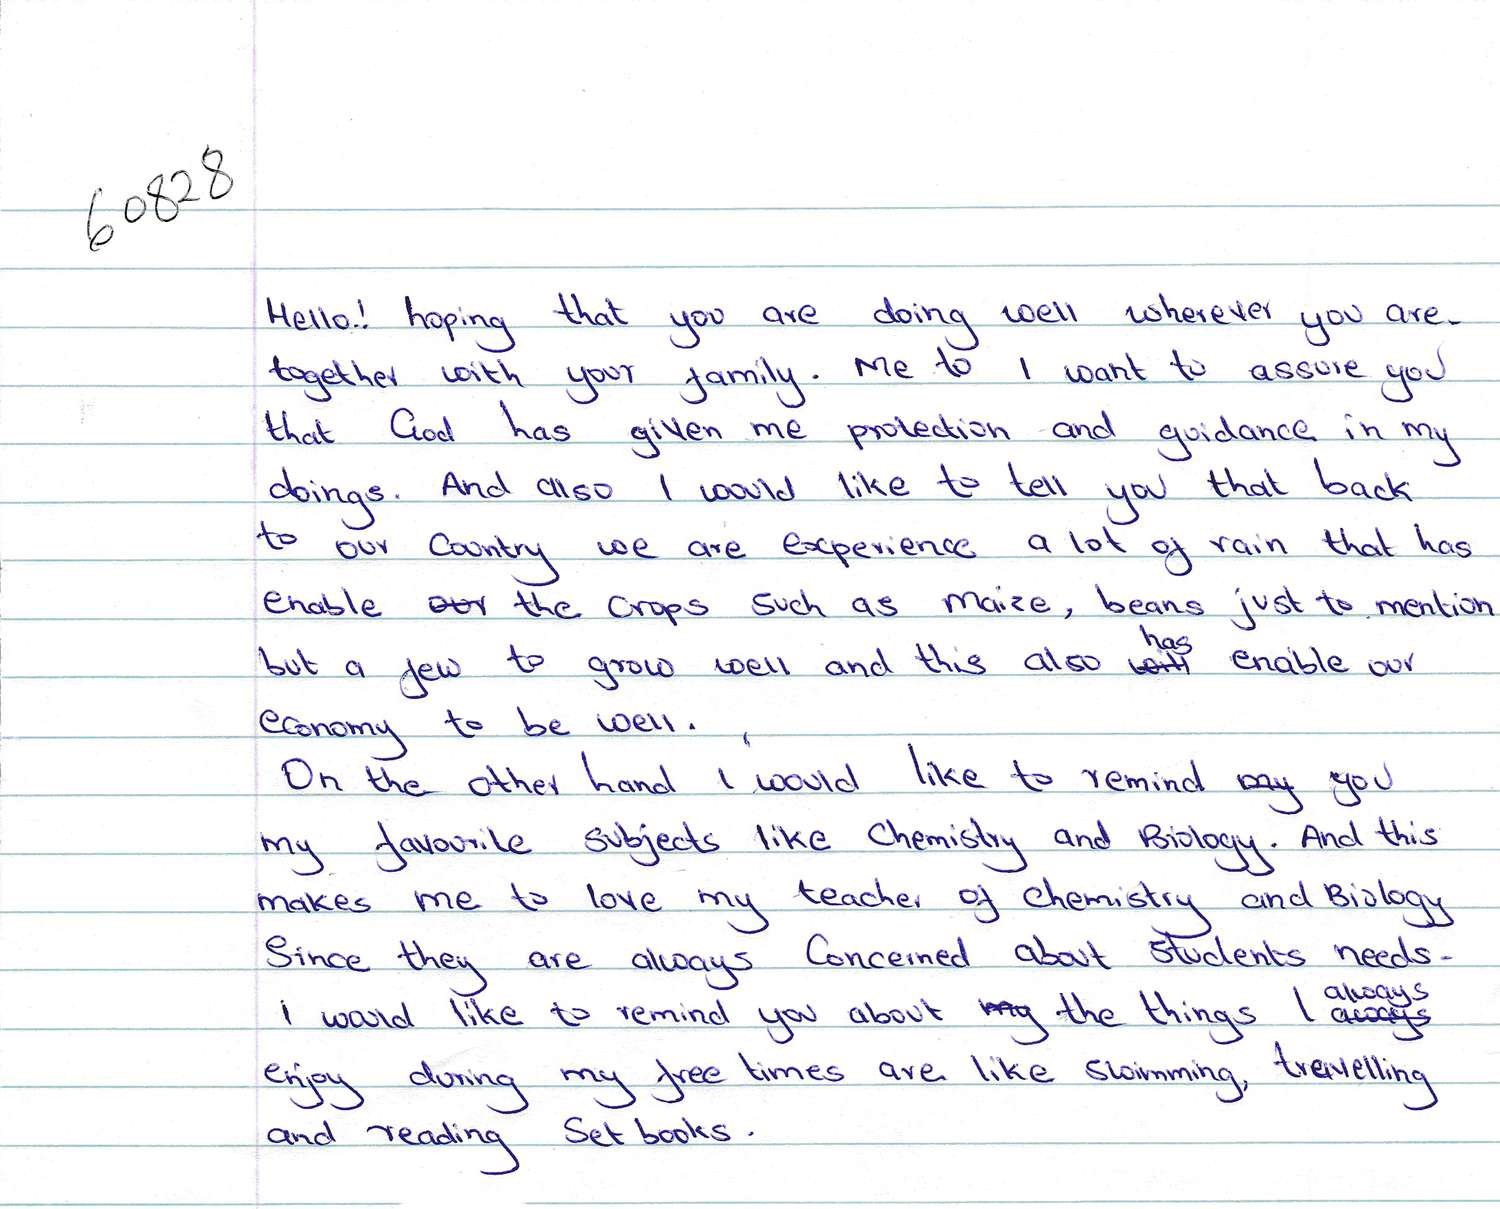 60828
Hello! hoping that you are doing well wherever you are.
together with your family. Me to I want to assure you
that God has given me protection and guidance in my
doings. And also I would like to tell you that back
to our Country we are experience a lot of rain that has
enable our the crops such as maize, beans just to mention
but a few to grow well and this also will has enable our
economy to be well.
On the other hand I would like to remind my you
my favourite subjects like Chemistry and Biology. And this
makes me to love my teacher of chemistry and Biology
Since they are always Concerned about students needs.
I would like to remind you about my the things I always
enjoy during my free times are like swimming, travelling
and reading Set books.